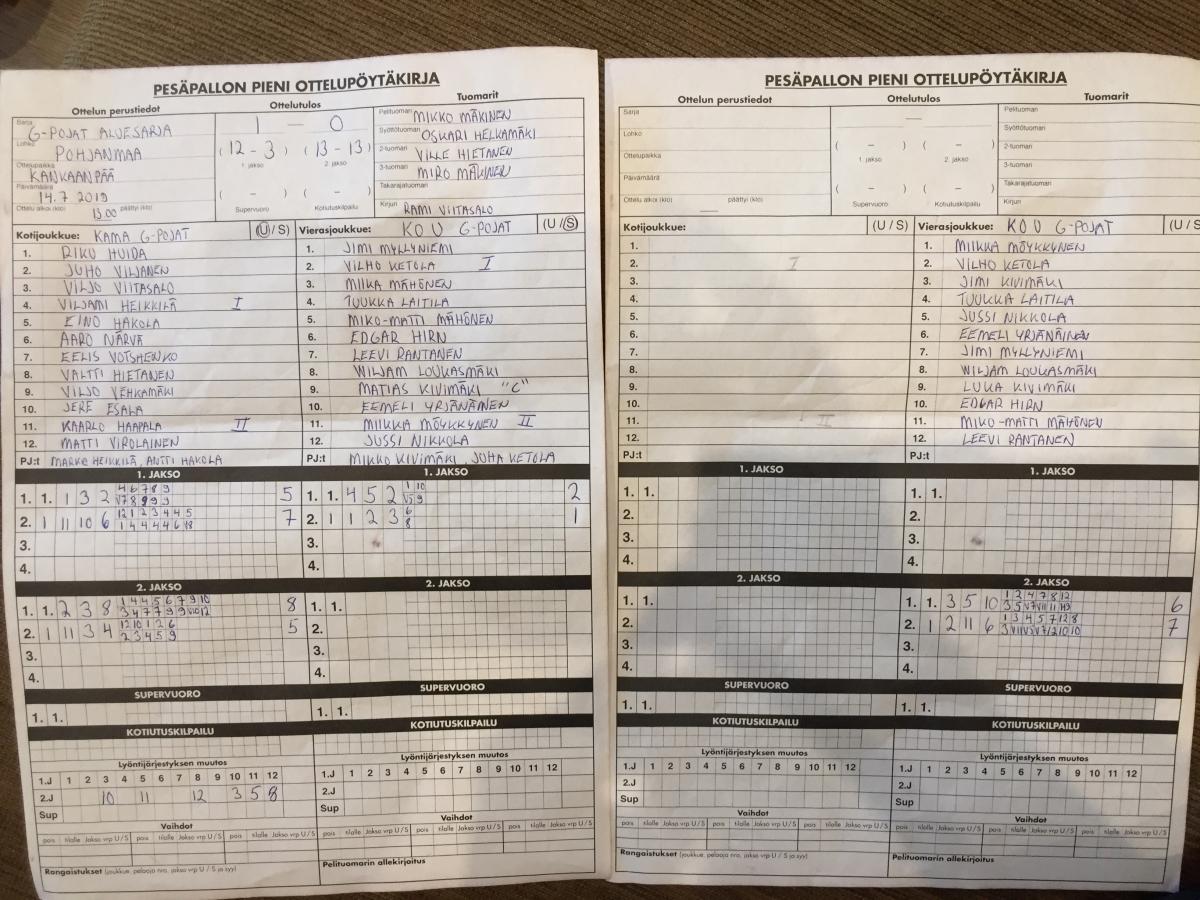 PESÄPALLON PIENI OTTELUPÖYTÄKIRJA
Ottelun perustiedot Ottelutulos Tuomarit
Sarja G-POJAT ALUESARJA
Lohko POHJANMAA
Ottelupaikka KANKAANPÄÄ
Päivämäärä 14.7 2019
Ottelu alkoi (klo) 13.00 päättyi (klo)
1 — 0
( 12 - 3 ) ( 13 - 13 )
1. jakso 2. jakso
( - ) ( - )
Supervuoro Kotiutuskilpailu
Pelituomari MIKKO MÄKINEN
Syöttötuomari OSKARI HELKAMÄKI
2-tuomari VILLE HIETANEN
3-tuomari MIRO MÄKINEN
Takarajatuomari
Kirjuri RAMI VIITASALO
Kotijoukkue: KAMA G-POJAT (U / S)
1. RIKU HUIDA
2. JUHO VILJANEN
3. VILJO VIITASALO
4. VILJAMI HEIKKILÄ I
5. EINO HAKOLA
6. AARO NÄRVÄ
7. EELIS VOTSHENKO
8. VALTTI HIETANEN
9. VILJO VEHKAMÄKI
10. JERE ESALA
11. KAARLO HAAPALA II
12. MATTI VIROLAINEN
PJ:t MARKO HEIKKILÄ, ANTTI HAKOLA
Vierasjoukkue: KOU G-POJAT (U / S)
1. JIMI MYLLYNIEMI
2. VILHO KETOLA I
3. MIIKA MÄHÖNEN
4. TUUKKA LAITILA
5. MIKO-MATTI MÄHÖNEN
6. EDGAR HIRN
7. LEEVI RANTANEN
8. WILJAM LOUKASMÄKI
9. MATIAS KIVIMÄKI "C"
10. EEMELI YRJÄNÄINEN
11. MIIKKA MÖYKKYNEN II
12. JUSSI NIKKOLA
PJ:t MIKKO KIVIMÄKI, JUHA KETOLA
1. JAKSO 1. JAKSO
1. 1. 1 3 2 4 6 7 8 9 5
1. 1. 4 5 2 1 10 2
2. 1 11 10 6 12 1 2 3 4 4 5 7
1 4 4 4 6
2. 1 1 2 3 6 1
8
3. 3.
4. 4.
2. JAKSO 2. JAKSO
1. 1. 2 3 8 1 4 4 5 6 7 9 10 8
1. 1.
2. 1 11 3 4 12 10 1 2 6 5
2 3 4 5 9
2.
3. 3.
4. 4.
SUPERVUORO SUPERVUORO
1. 1. 1. 1.
KOTIUTUSKILPAILU KOTIUTUSKILPAILU
Lyöntijärjestyksen muutos Lyöntijärjestyksen muutos
1.J 1 2 3 4 5 6 7 8 9 10 11 12 1.J 1 2 3 4 5 6 7 8 9 10 11 12
2.J 10 11 12 3 5 8 2.J
Sup Sup
Vaihdot Vaihdot
pois tilalle Jakso vrp U / S pois tilalle Jakso vrp U / S pois tilalle Jakso vrp U / S pois tilalle Jakso vrp U / S pois tilalle Jakso vrp U / S pois tilalle Jakso vrp U / S
Rangaistukset (joukkue, pelaaja nro, jakso vrp U / S ja syy) Pelituomarin allekirjoitus
PESÄPALLON PIENI OTTELUPÖYTÄKIRJA
Ottelun perustiedot Ottelutulos Tuomarit
Sarja
Lohko
Ottelupaikka
Päivämäärä
Ottelu alkoi (klo) päättyi (klo)
—
( - ) ( - )
1. jakso 2. jakso
( - ) ( - )
Supervuoro Kotiutuskilpailu
Pelituomari
Syöttötuomari
2-tuomari
3-tuomari
Takarajatuomari
Kirjuri
Kotijoukkue: (U / S)
1.
2. I
3.
4.
5.
6.
7.
8.
9.
10.
11. II
12.
PJ:t
Vierasjoukkue: KOU G-POJAT (U / S
1. MIIKKA MÖYKKYNEN
2. VILHO KETOLA
3. JIMI KIVIMÄKI
4. TUUKKA LAITILA
5. JUSSI NIKKOLA
6. EEMELI YRJÄNÄINEN
7. JIMI MYLLYNIEMI
8. WILJAM LOUKASMÄKI
9. LUKA KIVIMÄKI
10. EDGAR HIRN
11. MIKO-MATTI MÄHÖNEN
12. LEEVI RANTANEN
PJ:t
1. JAKSO 1. JAKSO
1. 1. 1. 1.
2. 2.
3. 3.
4. 4.
2. JAKSO 2. JAKSO
1. 1. 1. 1. 3 5 10 1 2 4 7 8 12 6
2. 2. 1 2 11 6 1 3 4 5 7 12 8 7
3. 3.
4. 4.
SUPERVUORO SUPERVUORO
1. 1. 1. 1.
KOTIUTUSKILPAILU KOTIUTUSKILPAILU
Lyöntijärjestyksen muutos Lyöntijärjestyksen muutos
1.J 1 2 3 4 5 6 7 8 9 10 11 12 1.J 1 2 3 4 5 6 7 8 9 10 11 12
2.J 2.J
Sup Sup
Vaihdot Vaihdot
pois tilalle Jakso vrp U / S pois tilalle Jakso vrp U / S pois tilalle Jakso vrp U / S pois tilalle Jakso vrp U / S pois tilalle Jakso vrp U / S pois tilalle Jakso vrp U / S
Rangaistukset (joukkue, pelaaja nro, jakso vrp U / S ja syy) Pelituomarin allekirjoitus